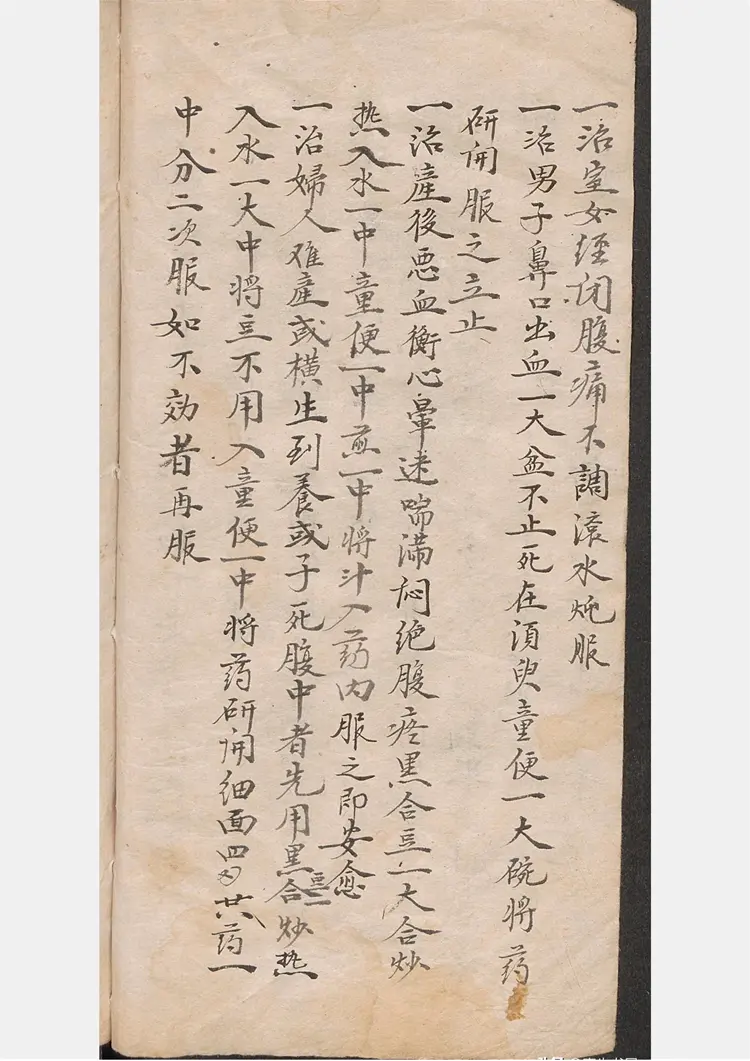 一治室女经闭腹痛不調滚水炖服
一治男子鼻口出血一大盆不止死在湏臾童便一大碗将药
研開服之立止
一治產後悪血衝心暈迷喘满闷绝腹疼黑合豆一大合炒
热入水一中童便一中煎一中将汁入药内服之即安愈
一治婦人难產或橫生到養或子死腹中者先用黑豆一合炒热
入水一大中将豆不用入童便一中将药研開细面四 廿六药一
中分二次服如不効者再服